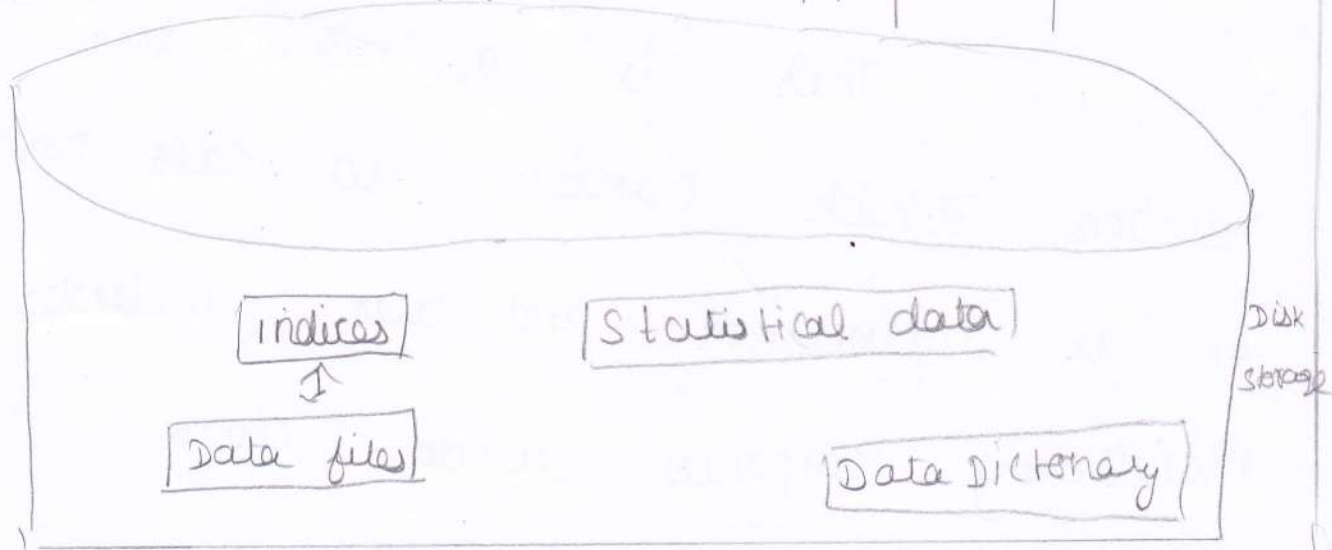 indices
Statistical data
Disk
Storage
Data files
Data Dictonary